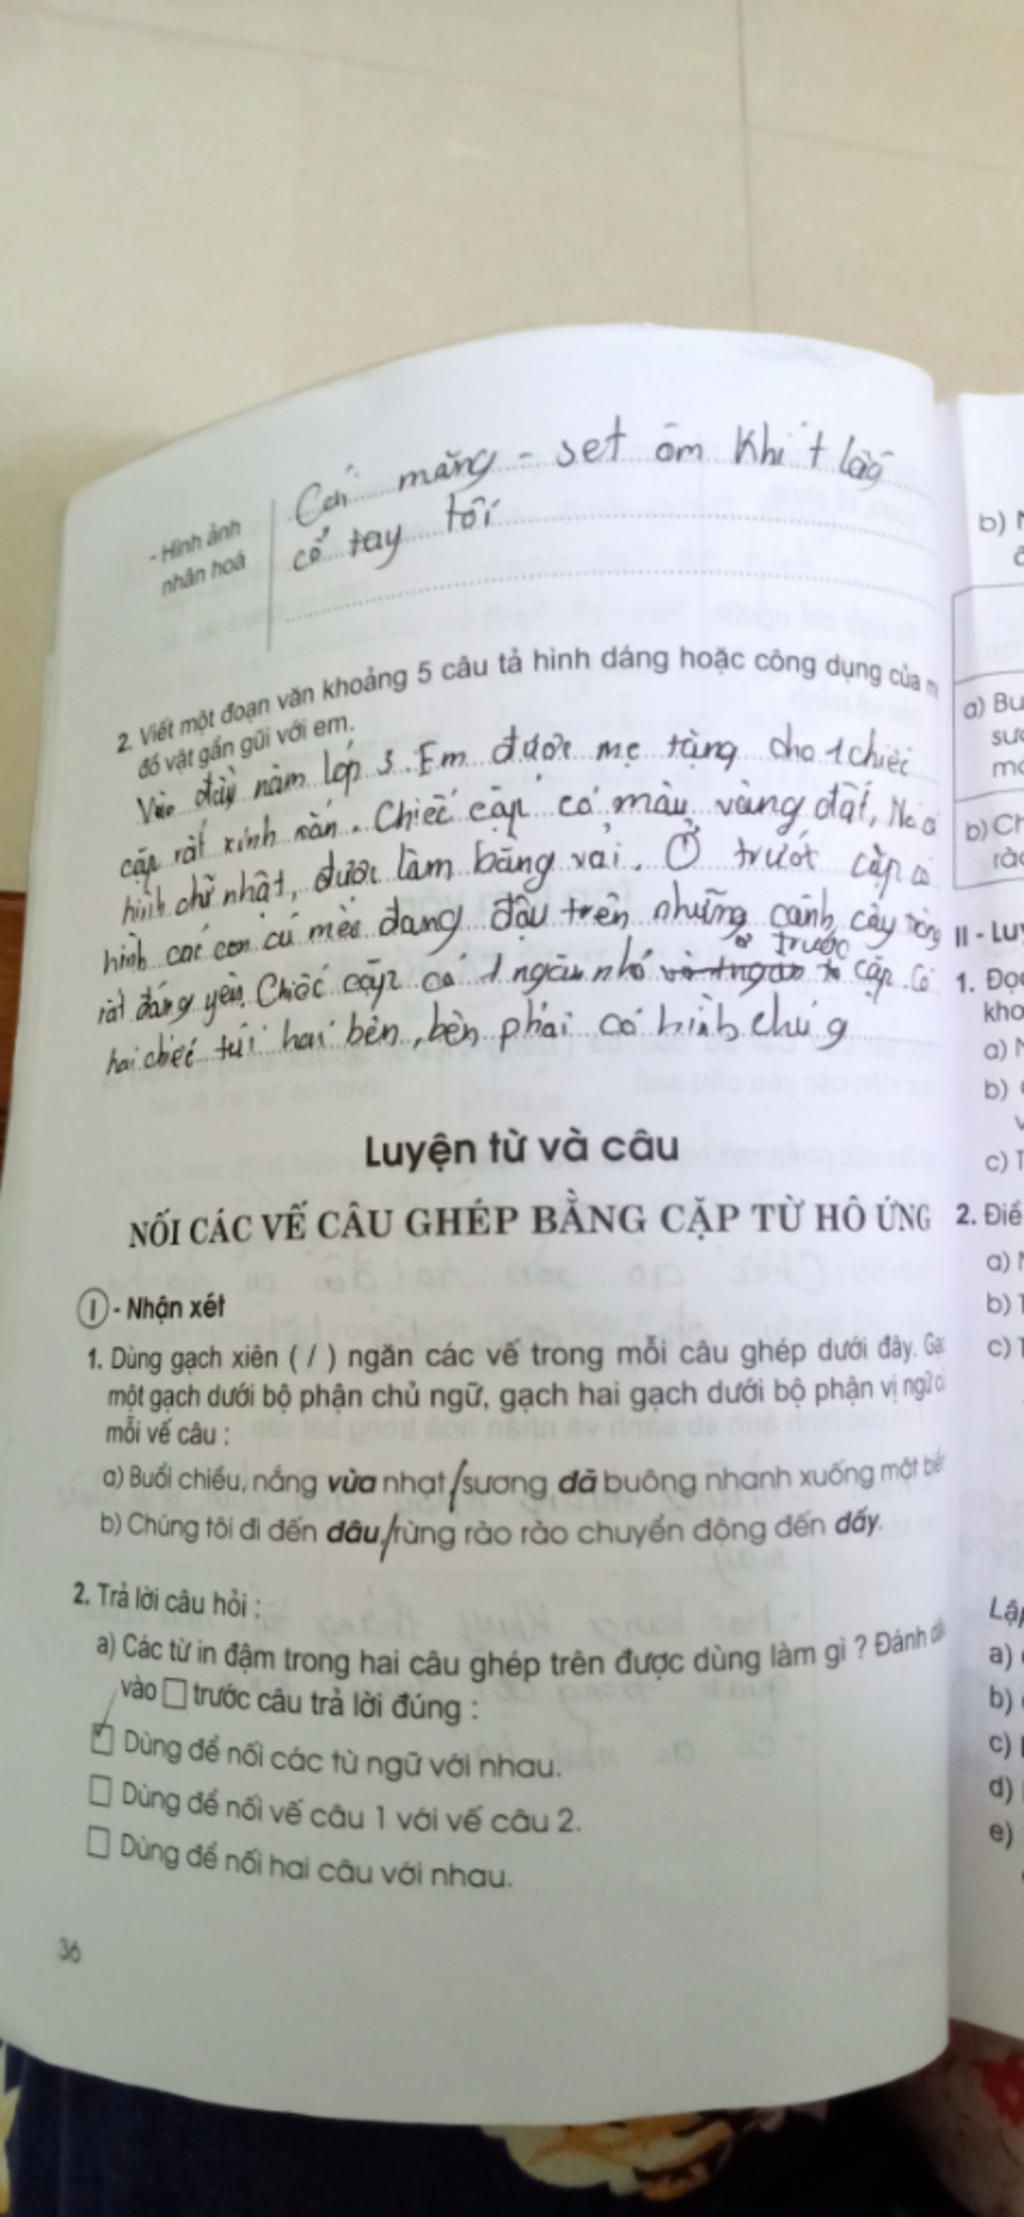 - Hình ảnh
nhân hoá
Cái măng - set ôm khít lấy
cổ tay tôi
2. Viết một đoạn văn khoảng 5 câu tả hình dáng hoặc công dụng của
đồ vật gần gũi với em.
Vào đầy năm lớp 3. Em được mẹ tặng cho 1 chiếc
cặp rất xinh xắn. Chiếc cặp có màu vàng đất, Nó có
hình chữ nhật, được làm bằng vải. Ở trướt cặp có
hình các con cú mèo đang đậu trên những cành cây trông
rất đáng yêu. Chiếc cặp có 1 ngăn nhỏ ở trước cặp. Có
hai chiếc túi hai bên, bên phải có hình chúg
Luyện từ và câu
NỐI CÁC VẾ CÂU GHÉP BẰNG CẶP TỪ HÔ ỨNG
I - Nhận xét
1. Dùng gạch xiên ( / ) ngăn các vế trong mỗi câu ghép dưới đây.
một gạch dưới bộ phận chủ ngữ, gạch hai gạch dưới bộ phận vị ngữ
mỗi vế câu :
a) Buổi chiều, nắng vừa nhạt / sương đã buông nhanh xuống mặt
b) Chúng tôi đi đến đâu, / rừng rào rào chuyển động đến đấy.
2. Trả lời câu hỏi :
a) Các từ in đậm trong hai câu ghép trên được dùng làm gì ? Đánh
vào □ trước câu trả lời đúng :
☑ Dùng để nối các từ ngữ với nhau.
□ Dùng để nối vế câu 1 với vế câu 2.
□ Dùng để nối hai câu với nhau.
36
b)
a) Bu
b) Ch
II - Lu
1.
kho
a)
b)
c)
2. Điề
a)
b)
c)
a)
b)
c)
d)
e)